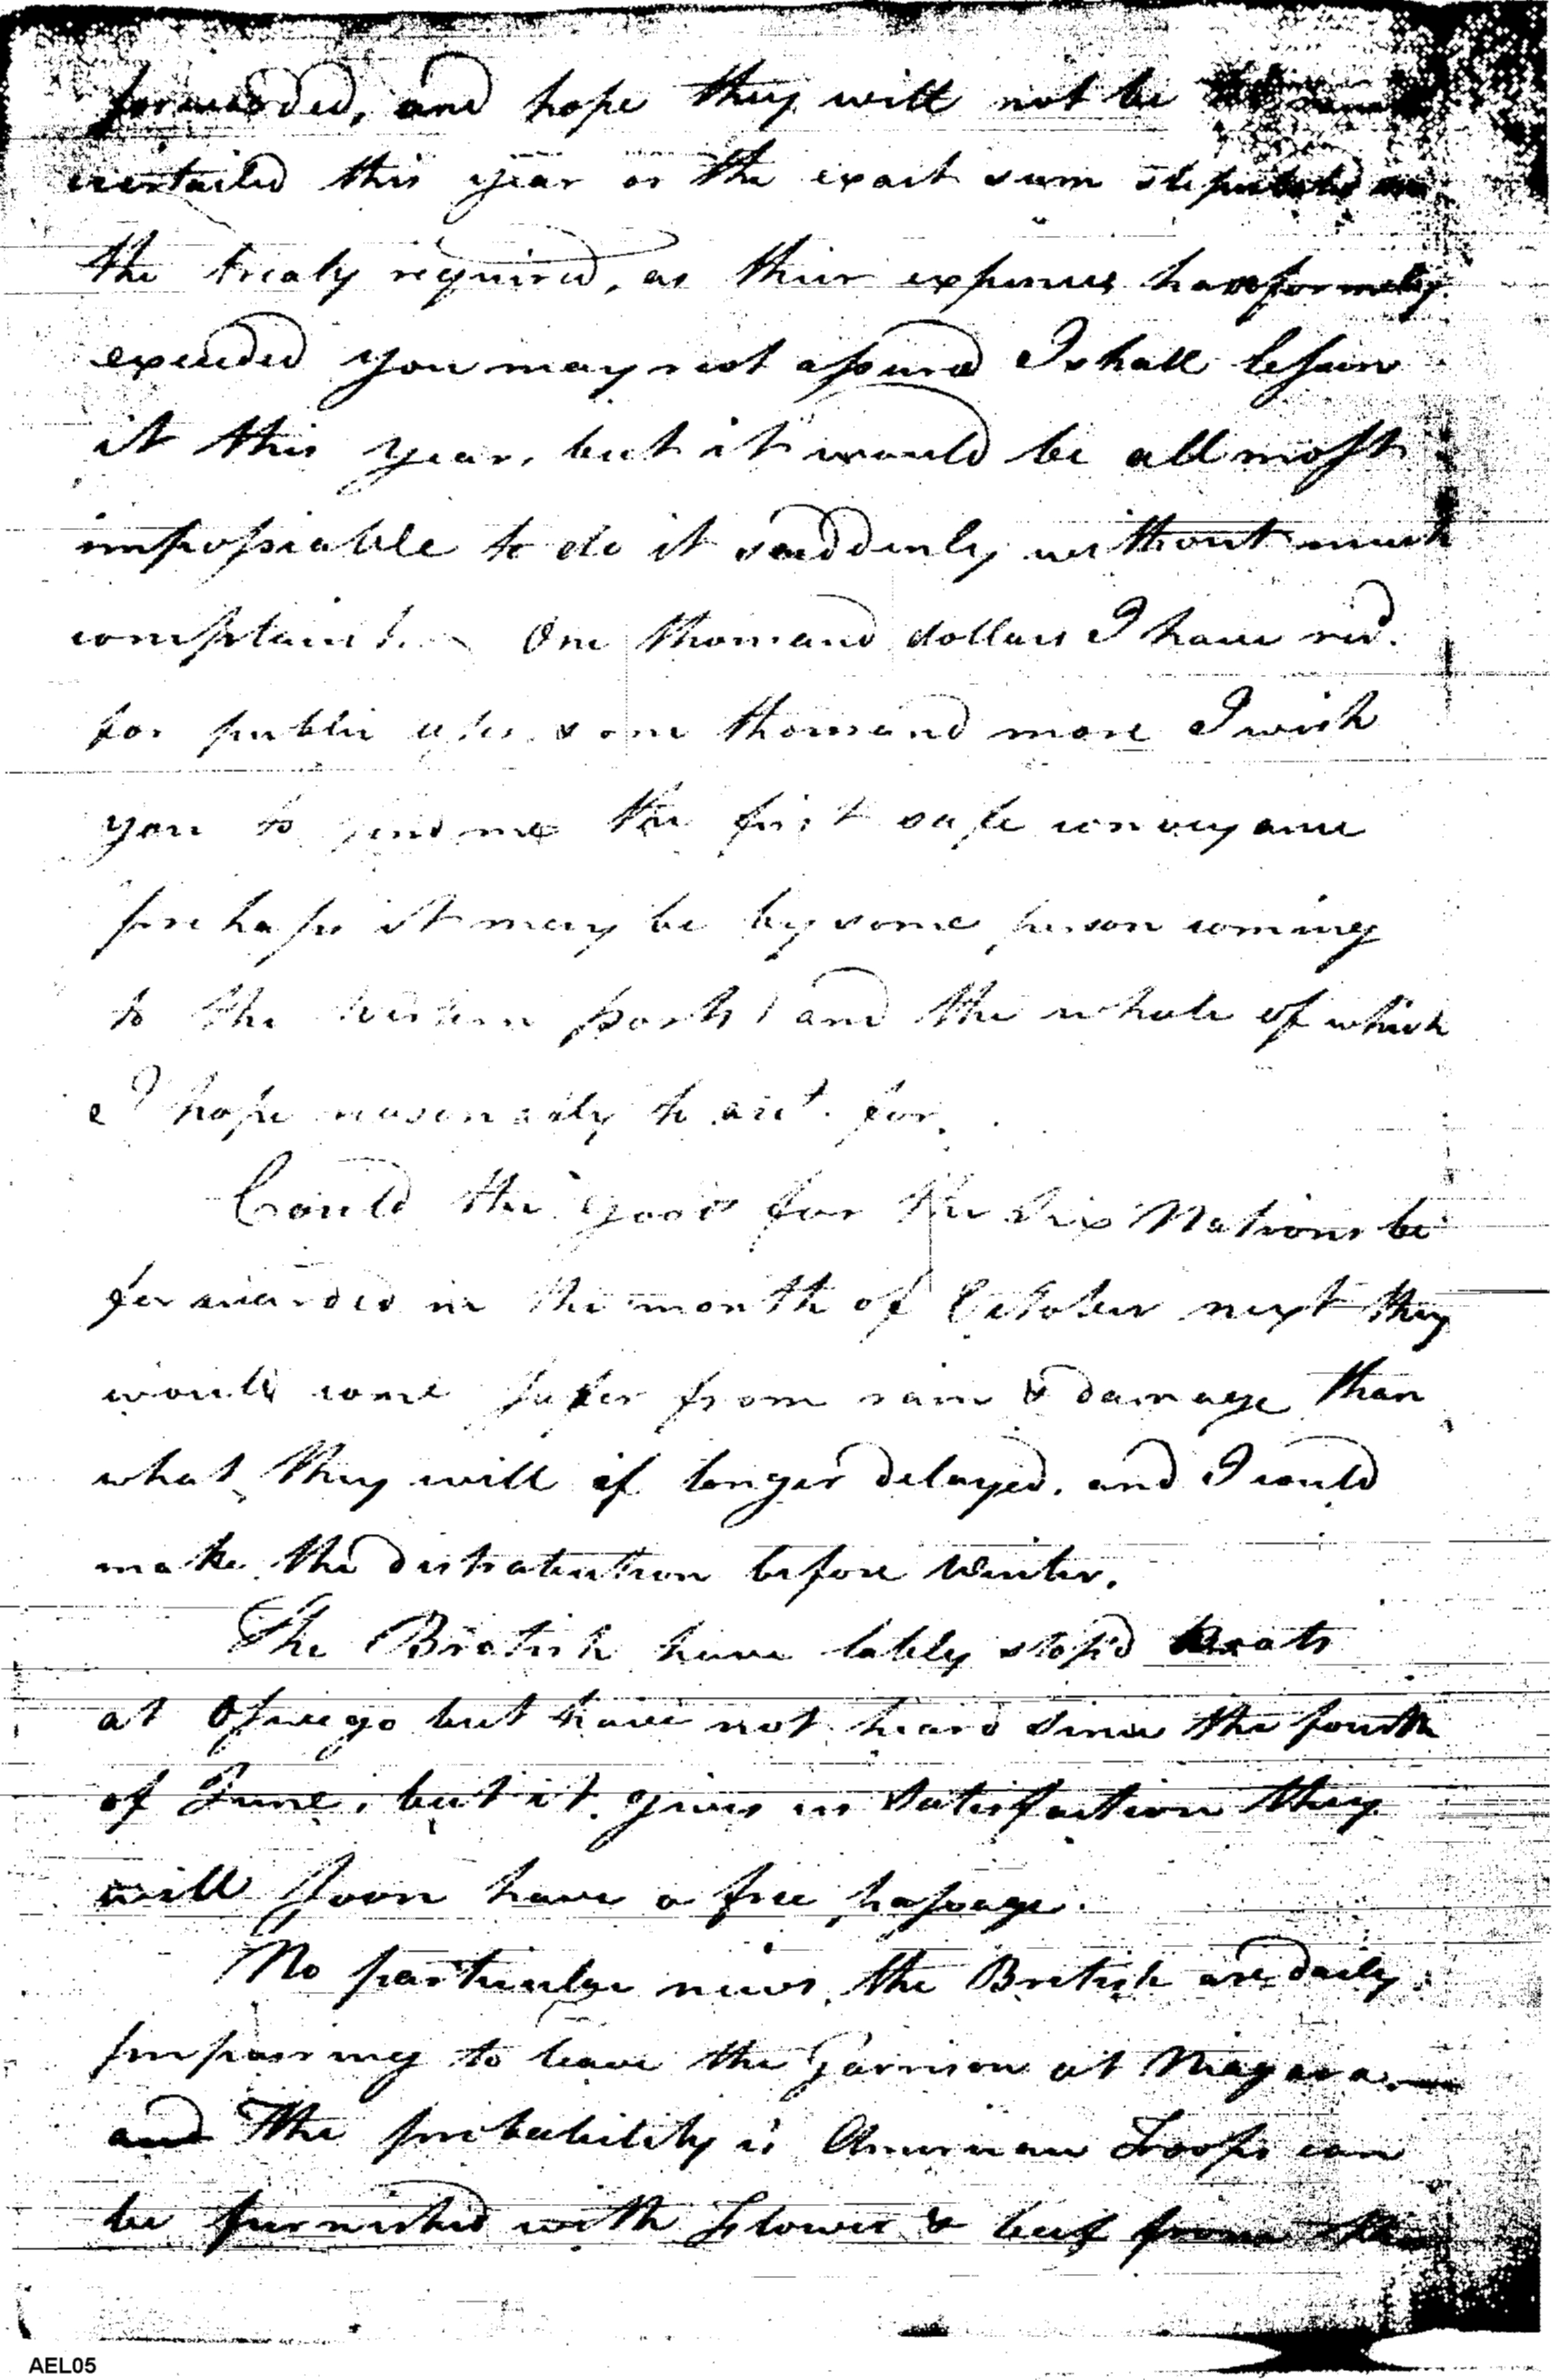 forwarded, and hope they will not be
curtailed this year or the exact sum stipulated in
the treaty required, as their expences have formerly
exceeded you may rest assured I shall lessen
it this year, but it would be allmost
impossiable to do it suddenly without much
complaint. One thousand dollars I have recd.
for public uses, & one thousand more I wish
you to send me the first safe conveyance
perhaps it may be by some person coming
to the western posts, and the whole of which
I hope to acct. for.
Could the goods for the Six Nations be
forwarded in the month of October next they
would come safer from rain & damage than
what they will if longer delayed, and I could
make the distrabution before Winter.
The British have lately stop'd Boats
at Oswego but have not heard since the fourth
of June, but it gives us Satisfaction they
will soon have a free passage.
No particular news, the British are daily
prepairing to leave the Garrison at Niagara.
and The probability is American Troops can
be furnished with Flower & beef from the
AEL05